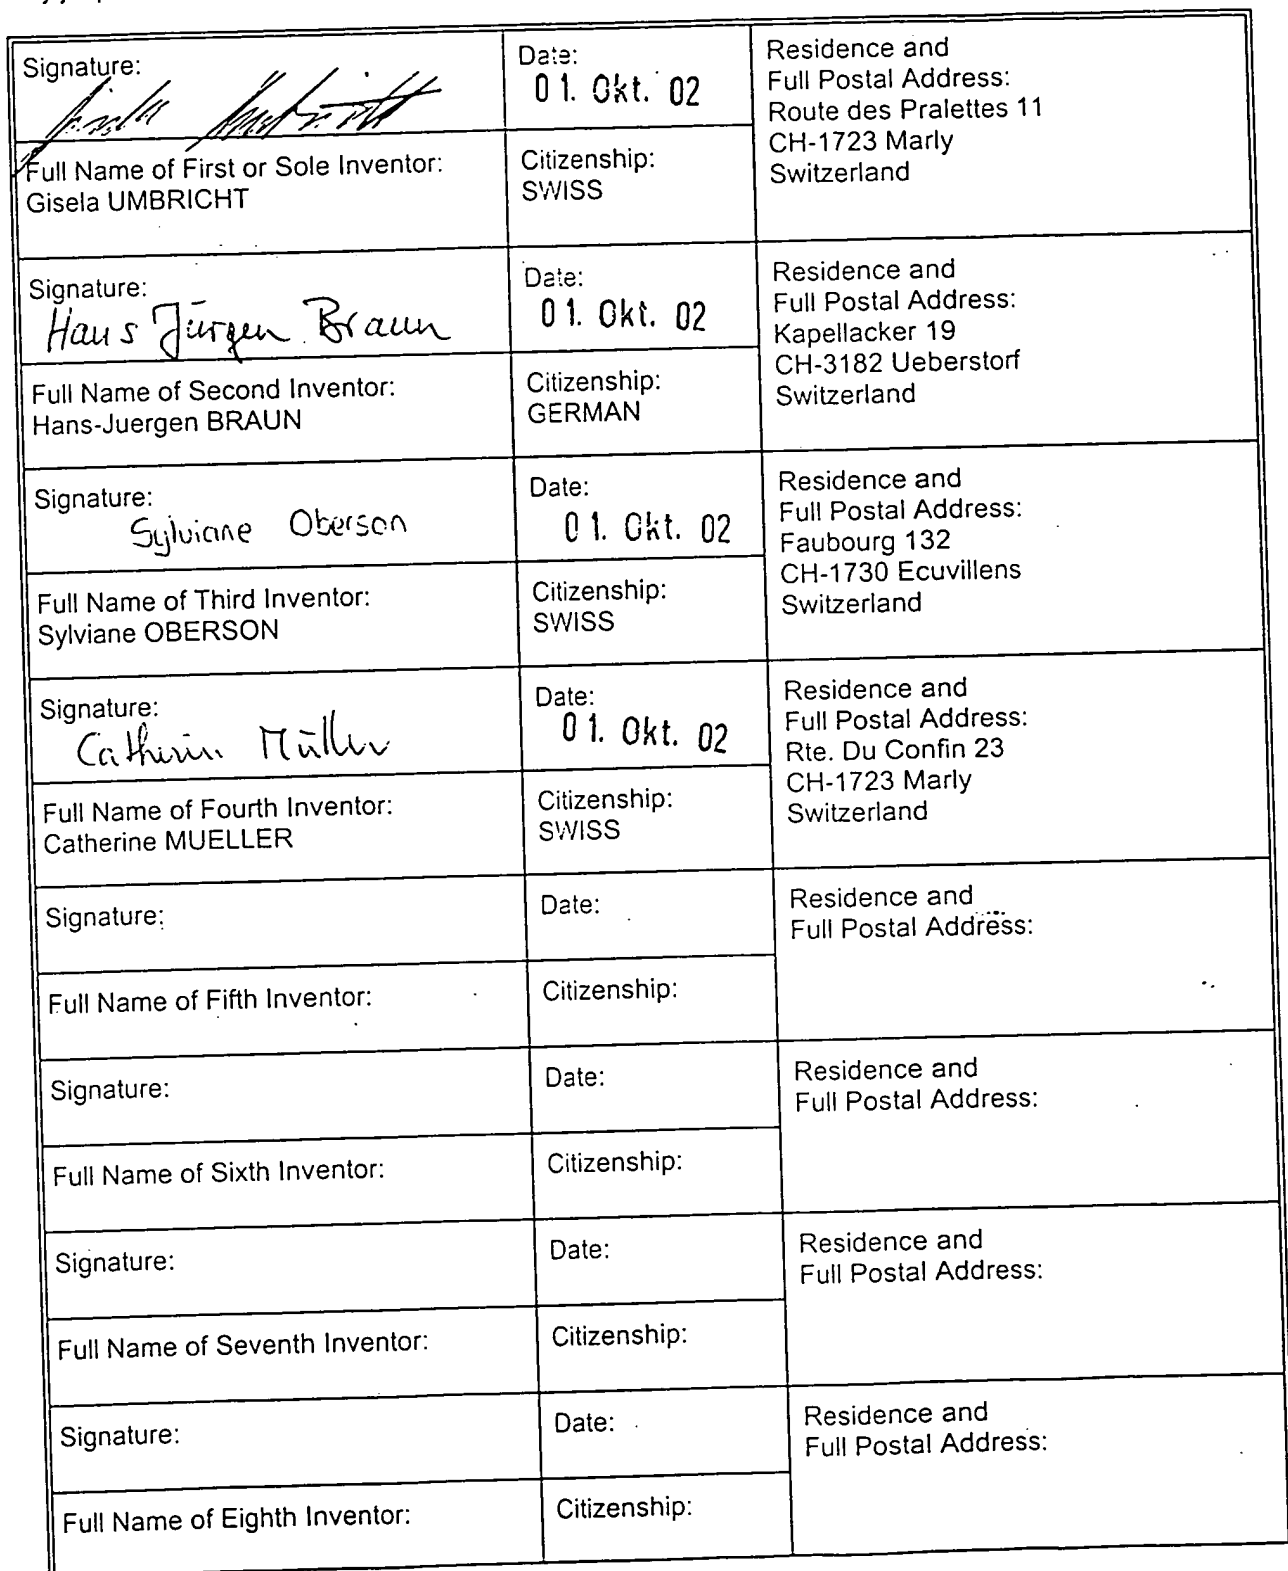 Signature:
Gisela Umbricht
Date:
01. Okt. 02
Residence and
Full Postal Address:
Route des Pralettes 11
CH-1723 Marly
Switzerland
Full Name of First or Sole Inventor:
Gisela UMBRICHT
Citizenship:
SWISS
Signature:
Hans Jürgen Braun
Date:
01. Okt. 02
Residence and
Full Postal Address:
Kapellacker 19
CH-3182 Ueberstorf
Switzerland
Full Name of Second Inventor:
Hans-Juergen BRAUN
Citizenship:
GERMAN
Signature:
Sylviane Oberson
Date:
01. Okt. 02
Residence and
Full Postal Address:
Faubourg 132
CH-1730 Ecuvillens
Switzerland
Full Name of Third Inventor:
Sylviane OBERSON
Citizenship:
SWISS
Signature:
Catherine Müller
Date:
01. Okt. 02
Residence and
Full Postal Address:
Rte. Du Confin 23
CH-1723 Marly
Switzerland
Full Name of Fourth Inventor:
Catherine MUELLER
Citizenship:
SWISS
Signature:
Date:
Residence and
Full Postal Address:
Full Name of Fifth Inventor:
Citizenship:
Signature:
Date:
Residence and
Full Postal Address:
Full Name of Sixth Inventor:
Citizenship:
Signature:
Date:
Residence and
Full Postal Address:
Full Name of Seventh Inventor:
Citizenship:
Signature:
Date:
Residence and
Full Postal Address:
Full Name of Eighth Inventor:
Citizenship: